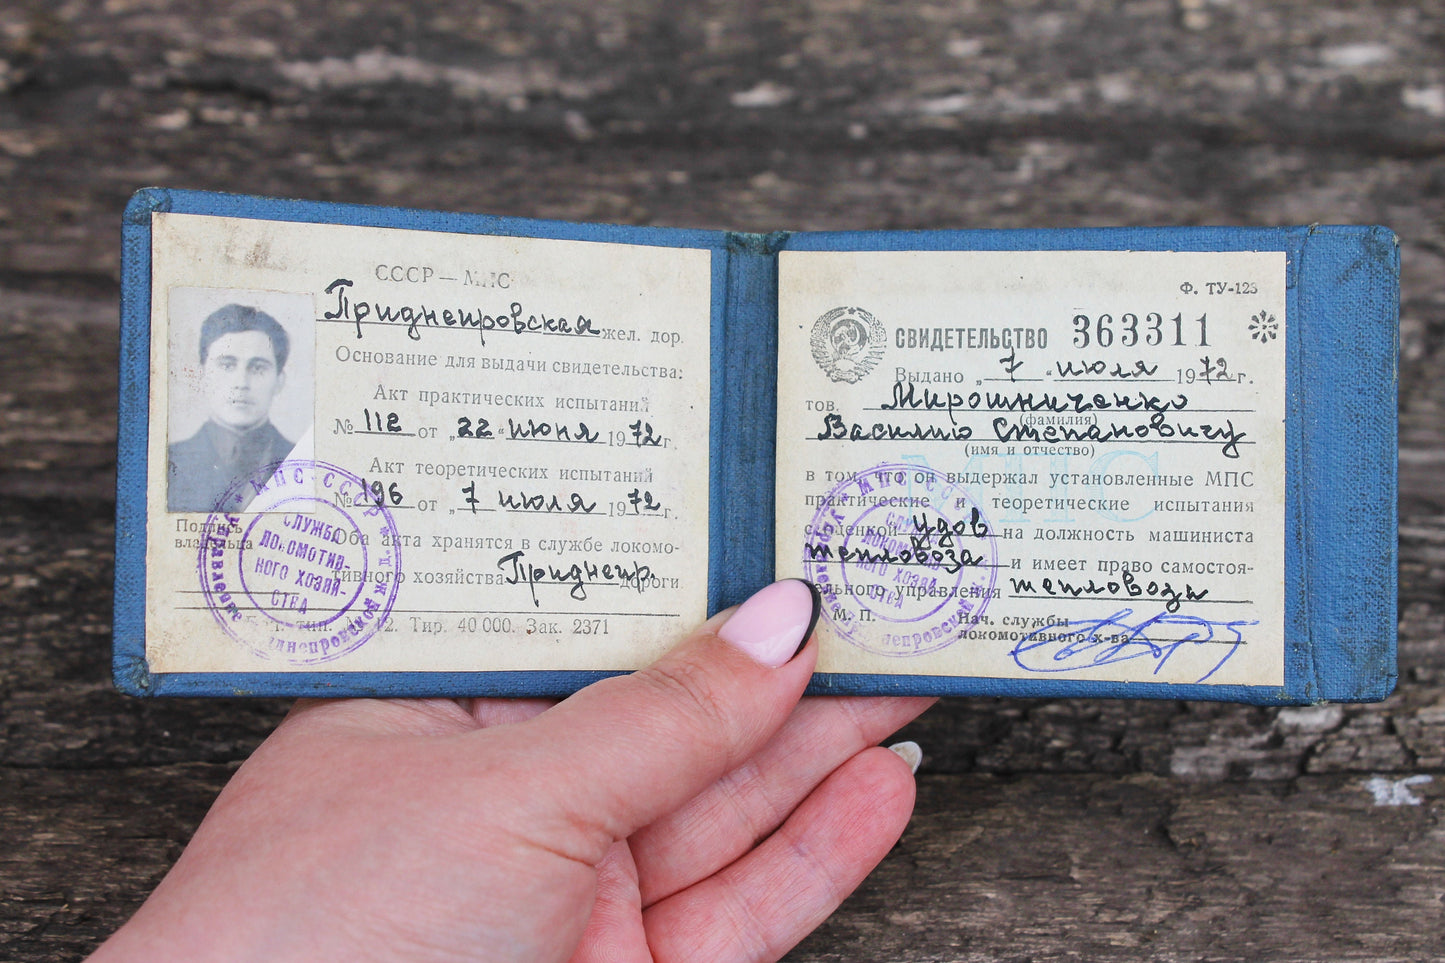 СССР — МПС
Приднепровская жел. дор.
Основание для выдачи свидетельства:
Акт практических испытаний
№ 112 от „22“ июня 1972 г.
Акт теоретических испытаний
№ 196 от „7 июля 1972 г.
Оба акта хранятся в службе локомо-
тивного хозяйства Приднепр. дороги
Подпись
владельца
МПС-СССР
СЛУЖБА
ЛОКОМОТИВ-
НОГО ХОЗЯЙ-
СТВА
тип. № 12. Тир. 40 000. Зак. 2371
Ф. ТУ-123
СВИДЕТЕЛЬСТВО 363311
Выдано „7“ июля 1972 г.
тов. Мирошниченко
(фамилия)
Василию Степановичу
(имя и отчество)
МПС
в том, что он выдержал установленные МПС
практические и теоретические испытания
с оценкой удов на должность машиниста
тепловоза и имеет право самостоя-
тельного управления тепловозы
М. П.
Нач. службы
локомотивного х-ва
МПС СССР
СЛУЖБА
ЛОКОМОТИВ-
НОГО ХОЗЯЙ-
СТВА